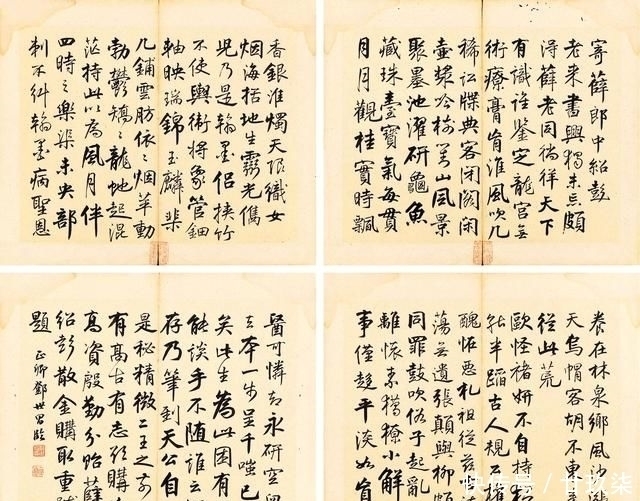 寄薛郎中紹彭
老來書興獨未忘頗
得薛老同徜徉天下
有識誰鑒定龍宮無
術療膏肓淮風吹几
稀訟牒典客閉閣閑
壺漿吟樹山風景
聚墨池濯研龜魚
藏珠臺寶氣每貫
月月觀桂實時飄
香銀淮燭天限織女
烟海括地生靈光儁
兒乃是翰墨侶挾竹
不使輿衛將象管鈿
軸映瑞錦玉麟棐
几鋪雲肪依〻烟華動
勃鬱矯〻龍蛇起混
茫持此以為風月伴
四時之樂渠未央部
刺不糾翰墨病聖恩
養在林泉鄉風沙
天烏帽客胡不東
從此荒
歐怪褚妍不自持
半蹈古人規
醜怪惡札祖從茲
蕩無遺張顛與柳頗
同罪鼓吹俗子起亂
離懷素獦獠小解
事僅趨平淡如盲
醫可憐智永研空臼
去本一步呈千嗤已
矣此生為此困有
能談手不隨誰云
存乃筆到天公自
是秘精微二王之前
有高古有志欲購
高資殷勤分貽薛
紹彭散金購取重跋
題
快传号/甘牧柒